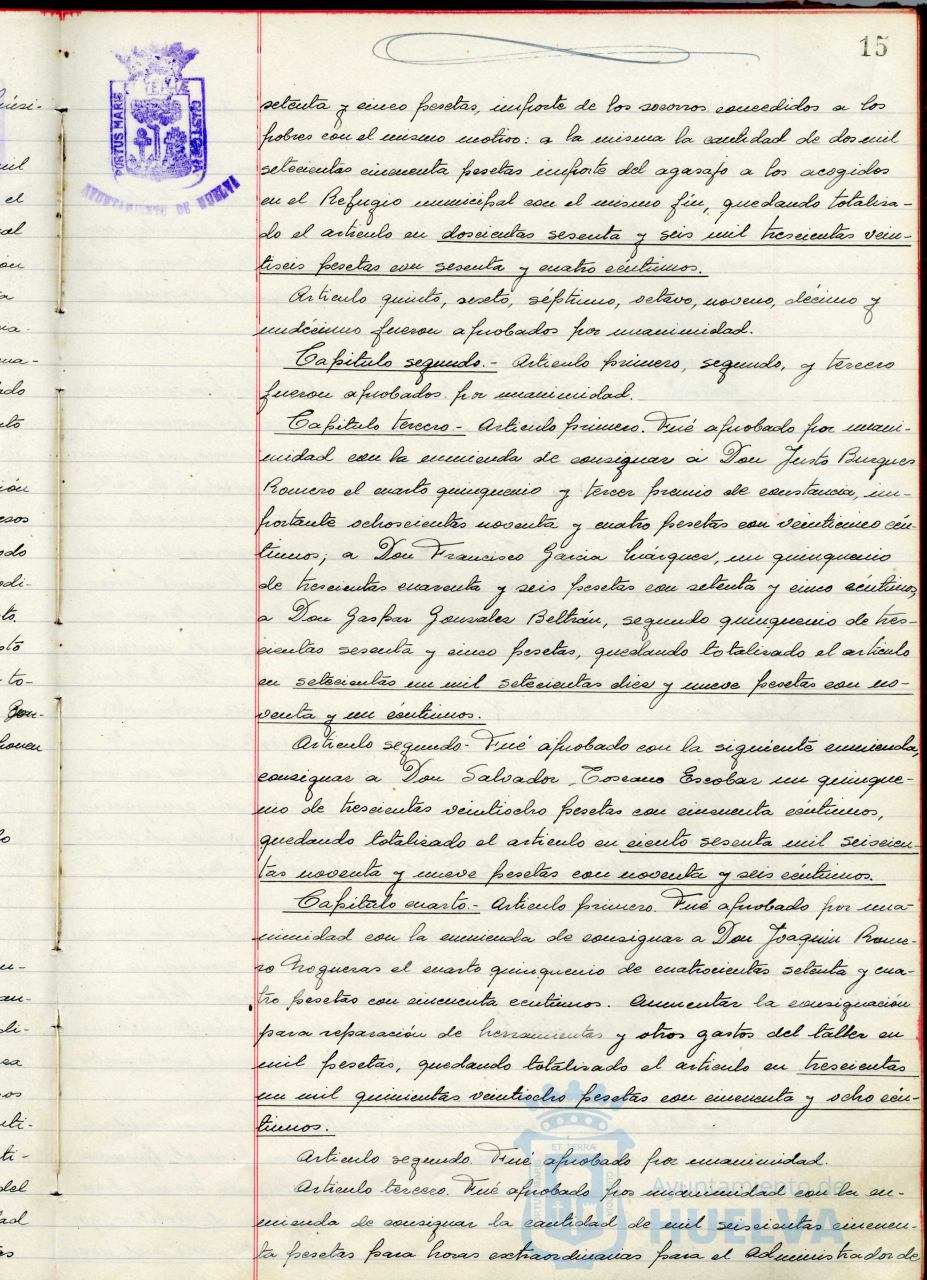 15
PORTUS MARIS ET TERRÆ CUSTODIA
AYUNTAMIENTO DE HUELVA
setenta y cinco pesetas, importe de los socorros concedidos a los
pobres con el mismo motivo: a la misma la cantidad de dos mil
setecientas cincuenta pesetas importe del agasajo a los acogidos
en el Refugio municipal con el mismo fin, quedando totaliza-
do el articulo en doscientas sesenta y seis mil trescientas vein-
tiseis pesetas con sesenta y cuatro céntimos.
Articulo quinto, sexto, séptimo, octavo, noveno, décimo y
undécimo fueron aprobados por unanimidad.
Capitulo segundo.- Articulo primero, segundo, y tercero
fueron aprobados por unanimidad.
Capitulo tercero.- Articulo primero. Fué aprobado por unani-
midad con la enmienda de consignar a Don Justo Burgues
Romero el cuarto quinquenio y tercer premio de constancia, im-
portante ochoscientas noventa y cuatro pesetas con veinticinco cén-
timos; a Don Francisco Garcia Márquez, un quinquenio
de trescientas cuarenta y seis pesetas con setenta y cinco céntimos,
a Don Gaspar Gonzalez Beltrán, segundo quinquenio de tres-
cientas sesenta y cinco pesetas, quedando totalizado el articulo
en setecientas un mil setecientas diez y nueve pesetas con no-
venta y un céntimos.
Articulo segundo- Fué aprobado con la siguiente enmienda,
consignar a Don Salvador Toscano Escobar un quinque-
nio de trescientas veintiocho pesetas con cincuenta céntimos,
quedando totalizado el articulo en ciento sesenta mil seiscien-
tas noventa y nueve pesetas con noventa y seis céntimos.
Capitulo cuarto.- Articulo primero. Fué aprobado por una-
nimidad con la enmienda de consignar a Don Joaquin Rome-
ro Nogueras el cuarto quinquenio de cuatrocientas setenta y cua-
tro pesetas con cincuenta centimos. Aumentar la consignación
para reparación de herramientas y otros gastos del taller en
mil pesetas, quedando totalizado el articulo en trescientas
un mil quinientas veintiocho pesetas con cincuenta y ocho cén-
timos.
Articulo segundo. Fué aprobado por unanimidad.
Articulo tercero. Fué aprobado por unanimidad con la en-
mienda de consignar la cantidad de mil seiscientas cincuen-
ta pesetas para horas extraordinarias para el Administrador de
Ayuntamiento de
HUELVA